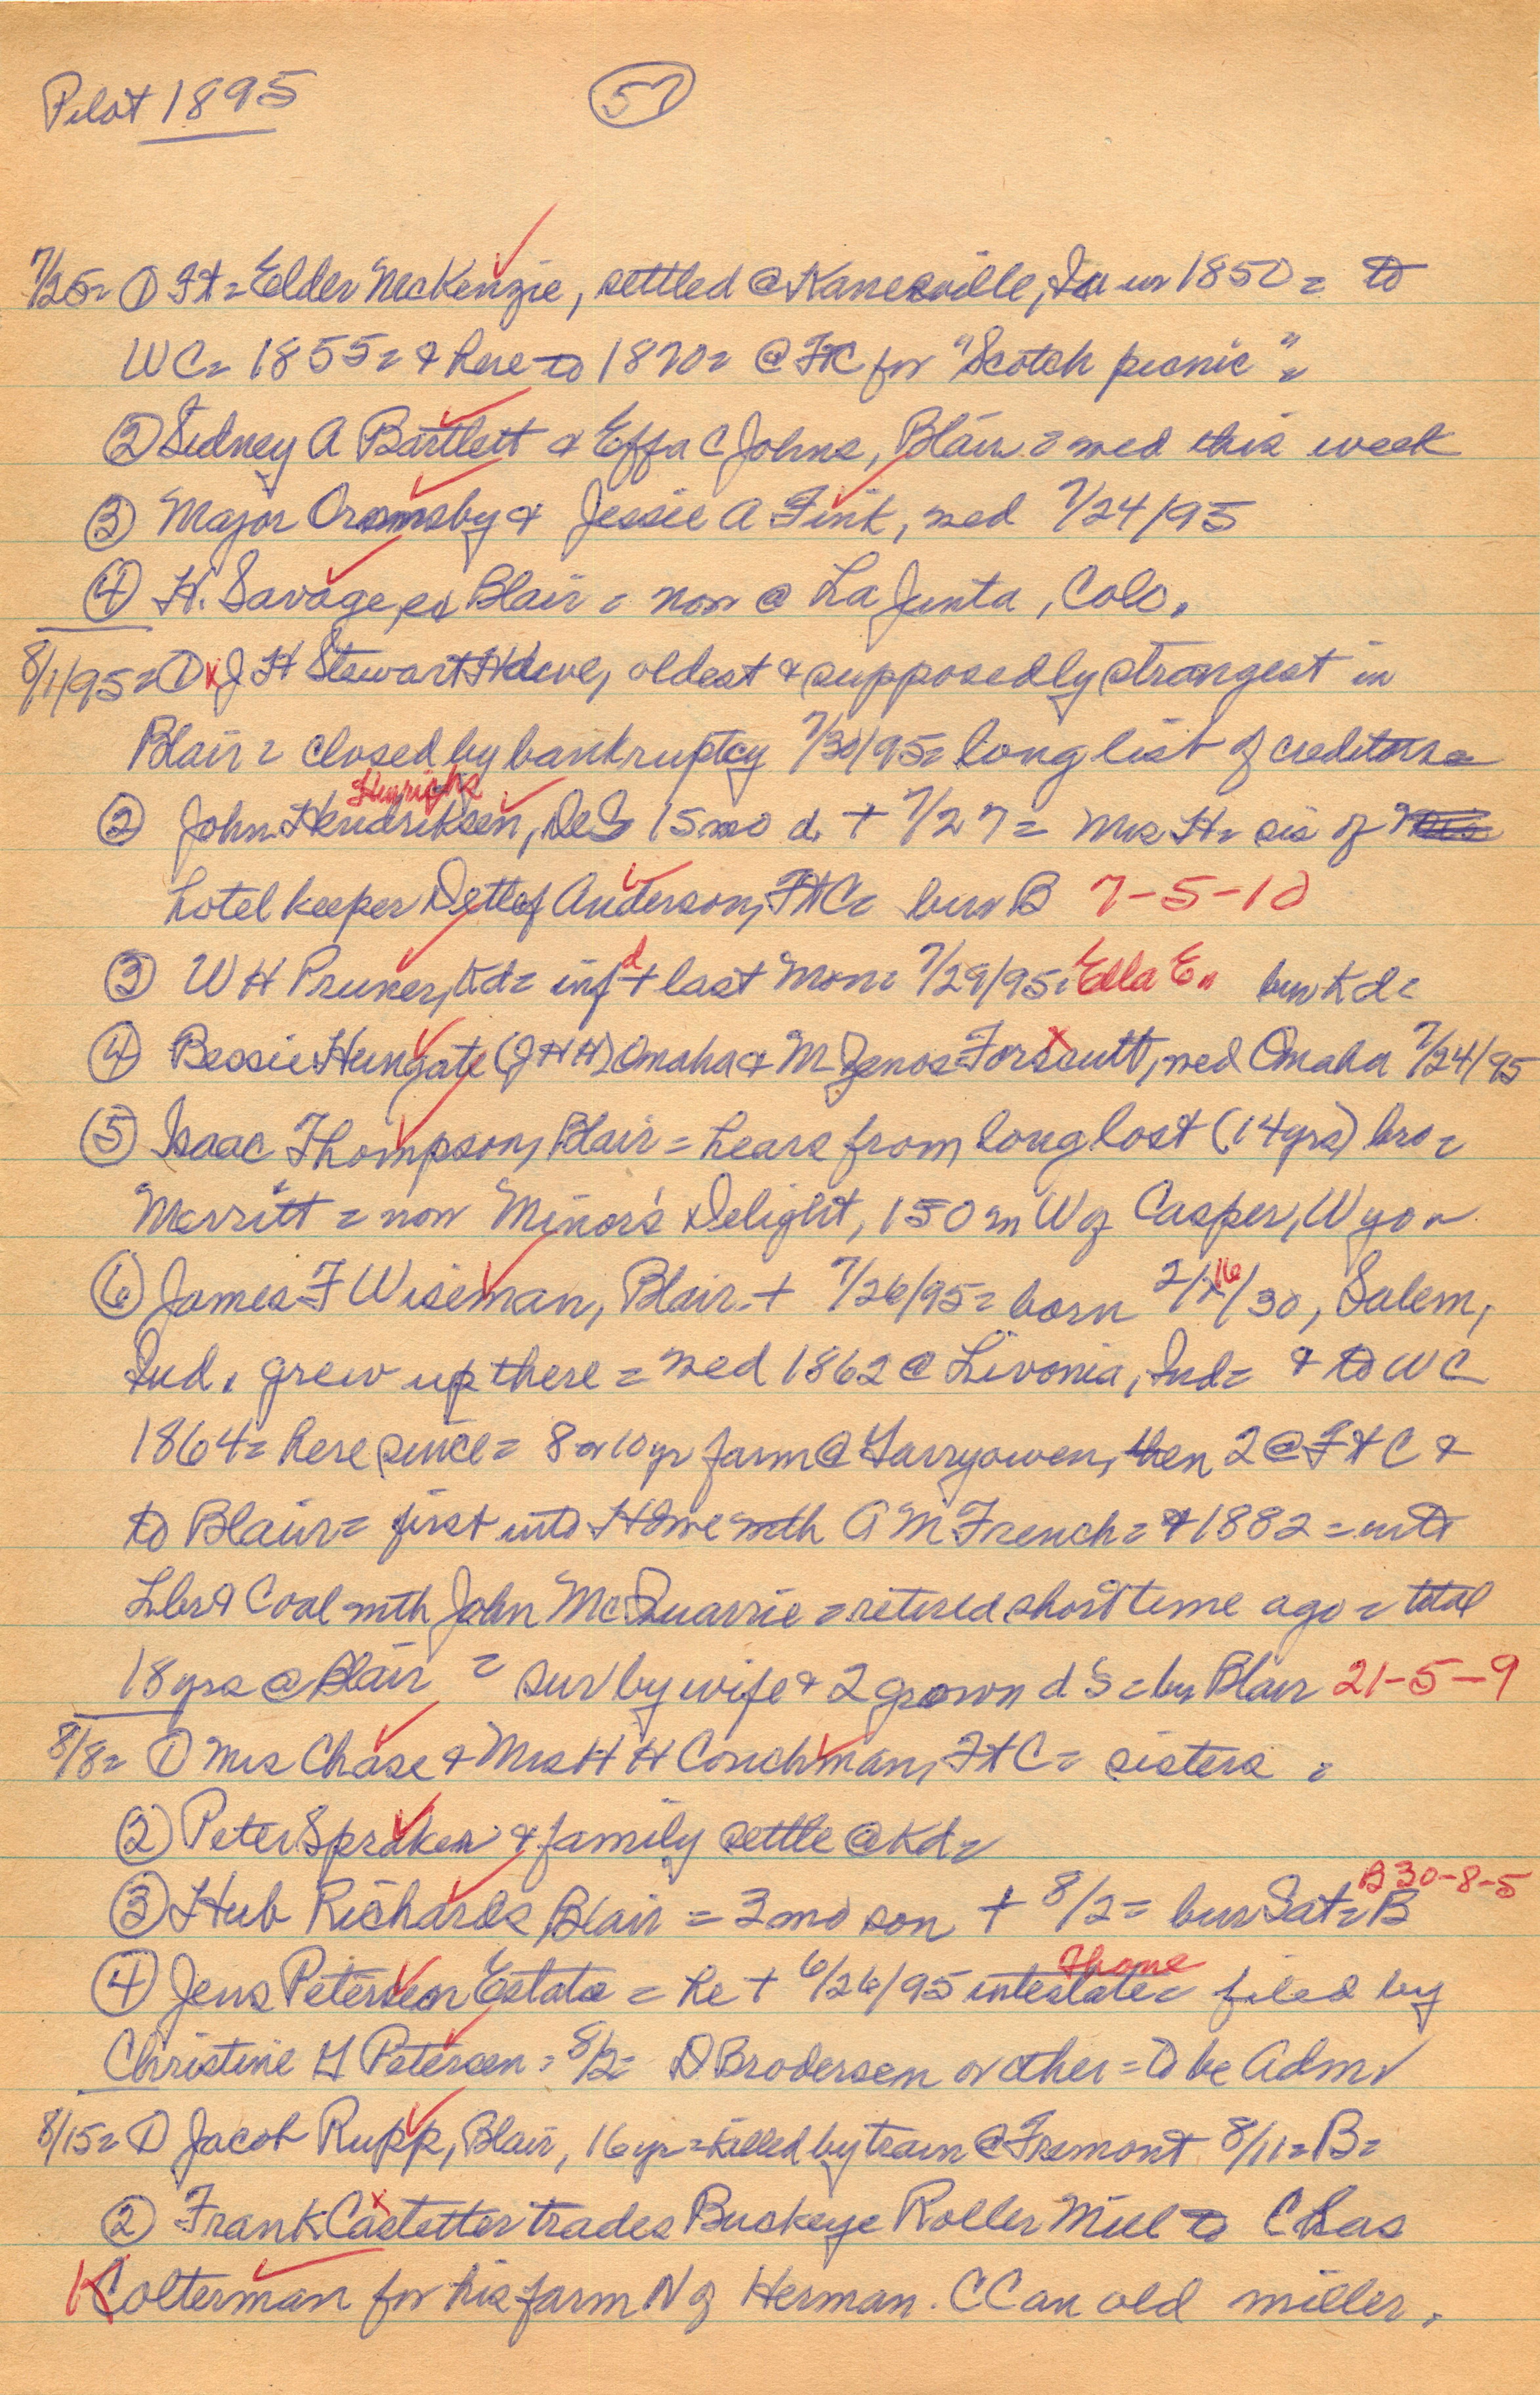 Pilot 1895
57
7/25= ① Ft= Elder McKenzie, settled @ Kanesville, Ia in 1850= to
WC= 1855= & here to 1870= @ FtC for "Scotch picnic"=
② Sidney A Bartlett & Effa C Johns, Blair = med this week
③ Major Ormsby & Jessie A Fink, med 7/24/95
④ H. Savage, ex Blair = now @ La Junta, Colo.
8/1/95= ① x J H Stewart Hdwe, oldest & supposedly strongest in
Blair = closed by bankruptcy 7/30/95= long list of creditors=
Hinrichs
② John Hendriksen, DeS 15 mo d. + 7/27= Mrs H= sis of
hotel keeper Detlef Anderson, FtC= bur B 7-5-10
③ W H Pruner, Kd= inf d + last Mon= 7/29/95= Ella E. bur Kd=
④ Bessie Hungate (J H H) Omaha & M Zenos Forscutt, med Omaha 7/24/95
⑤ Isaac Thompson, Blair = hears from long lost (14yrs) bro=
Merritt = now Minor's Delight, 150 m W of Casper, Wyo=
⑥ James F Wiseman, Blair + 7/26/95= born 2/16/30, Salem,
Ind. grew up there = med 1862 @ Livonia, Ind= & to WC
1864= here since= 8 or 10 yr farm @ Garryowen, then 2 @ FtC &
to Blair= first into Hdwe with A M French= & 1882 = into
Lbr & Coal with John McQuarrie = retired short time ago = total
18 yrs @ Blair = sur by wife & 2 grown d's = by Blair 21-5-9
8/8= ① Mrs Chase & Mrs H H Couchman, FtC= sisters =
② Peter Spraken & family settle @ Kd=
B 30-8-5
③ Hub Richards Blair = 3 mo son + 8/2= bur Sat= B
④ Jens Petersen Estate = he + 6/26/95 intestate= filed by
Christine G Petersen = 8/2= D Brodersen or other = to be Admr
8/15= ① Jacob Rupp, Blair, 16 yr = killed by train @ Fremont 8/11= B=
② Frank Castetter trades Buckeye Roller Mill to Chas
Kolterman for his farm N of Herman. CC an old miller.